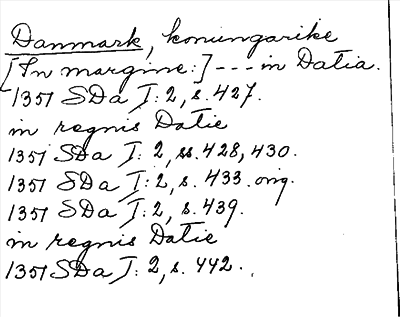 Danmark, konungarike
[In margine:] --- in Datia.
1351 SDa I: 2, s. 427.
in regnis Datie
1351 SDa I: 2, ss. 428, 430.
1351 SDa I: 2, s. 433. orig.
1351 SDa I: 2, s. 439.
in regnis Datie
1351 SDa I: 2, s. 442.